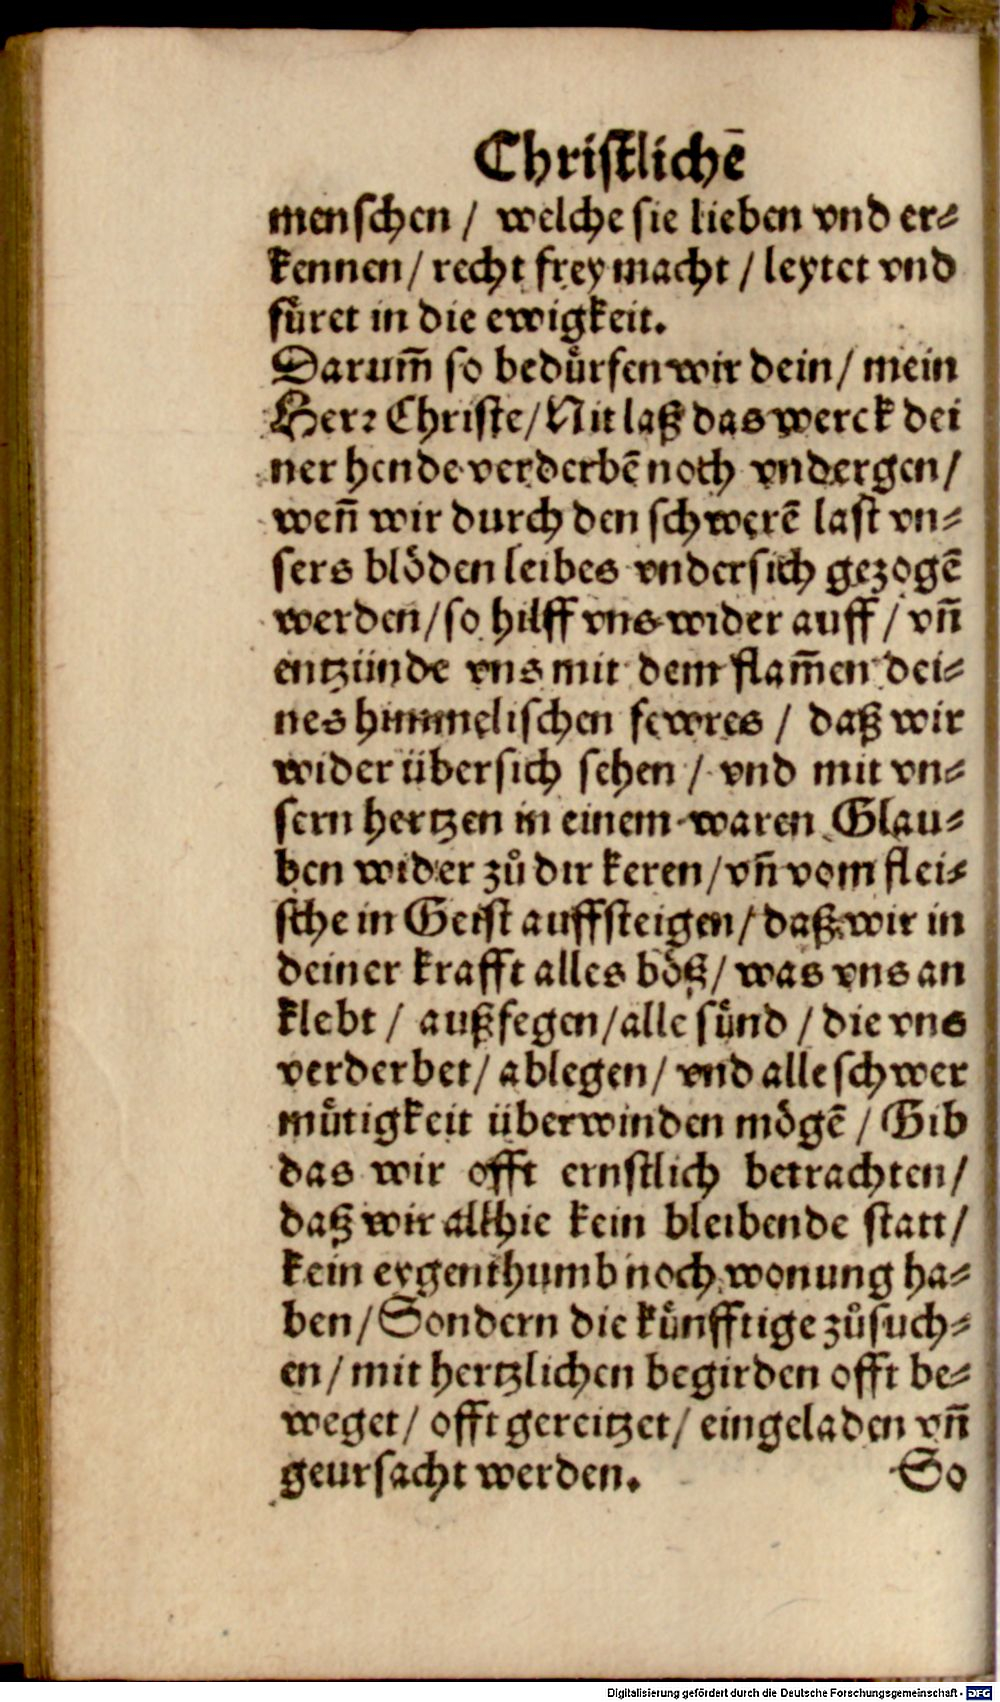 Christlichē
menschen / welche sie lieben vnd er⸗
kennen / recht frey macht / leytet vnd
fuͤret in die ewigkeit.
Darum̄ so beduͤrfen wir dein / mein
Herꝛ Christe / Nit laß das werck dei
ner hende verderbē noch vndergen /
weñ wir durch den schwerē last vn⸗
sers bloͤden leibes vndersich gezogē
werden / so hilff vns wider auff / vñ
entzünde vns mit dem flam̄en dei⸗
nes himmelischen fewres / daß wir
wider übersich sehen / vnd mit vn⸗
sern hertzen in einem waren Glau⸗
ben wider zů dir keren / vñ vom flei⸗
sche in Geist auffsteigen / daß wir in
deiner krafft alles boͤß / was vns an
klebt / außfegen / alle suͤnd / die vns
verderbet / ablegen / vnd alle schwer
muͤtigkeit überwinden moͤgē / Gib
das wir offt ernstlich betrachten /
daß wir allhie kein bleibende statt /
kein eygenthumb noch wonung ha⸗
ben / Sondern die kuͤnfftige zůsuch⸗
en / mit hertzlichen begirden offt be⸗
weget / offt gereitzet / eingeladen vñ
geursacht werden.
So
Digitalisierung gefördert durch die Deutsche Forschungsgemeinschaft - DFG